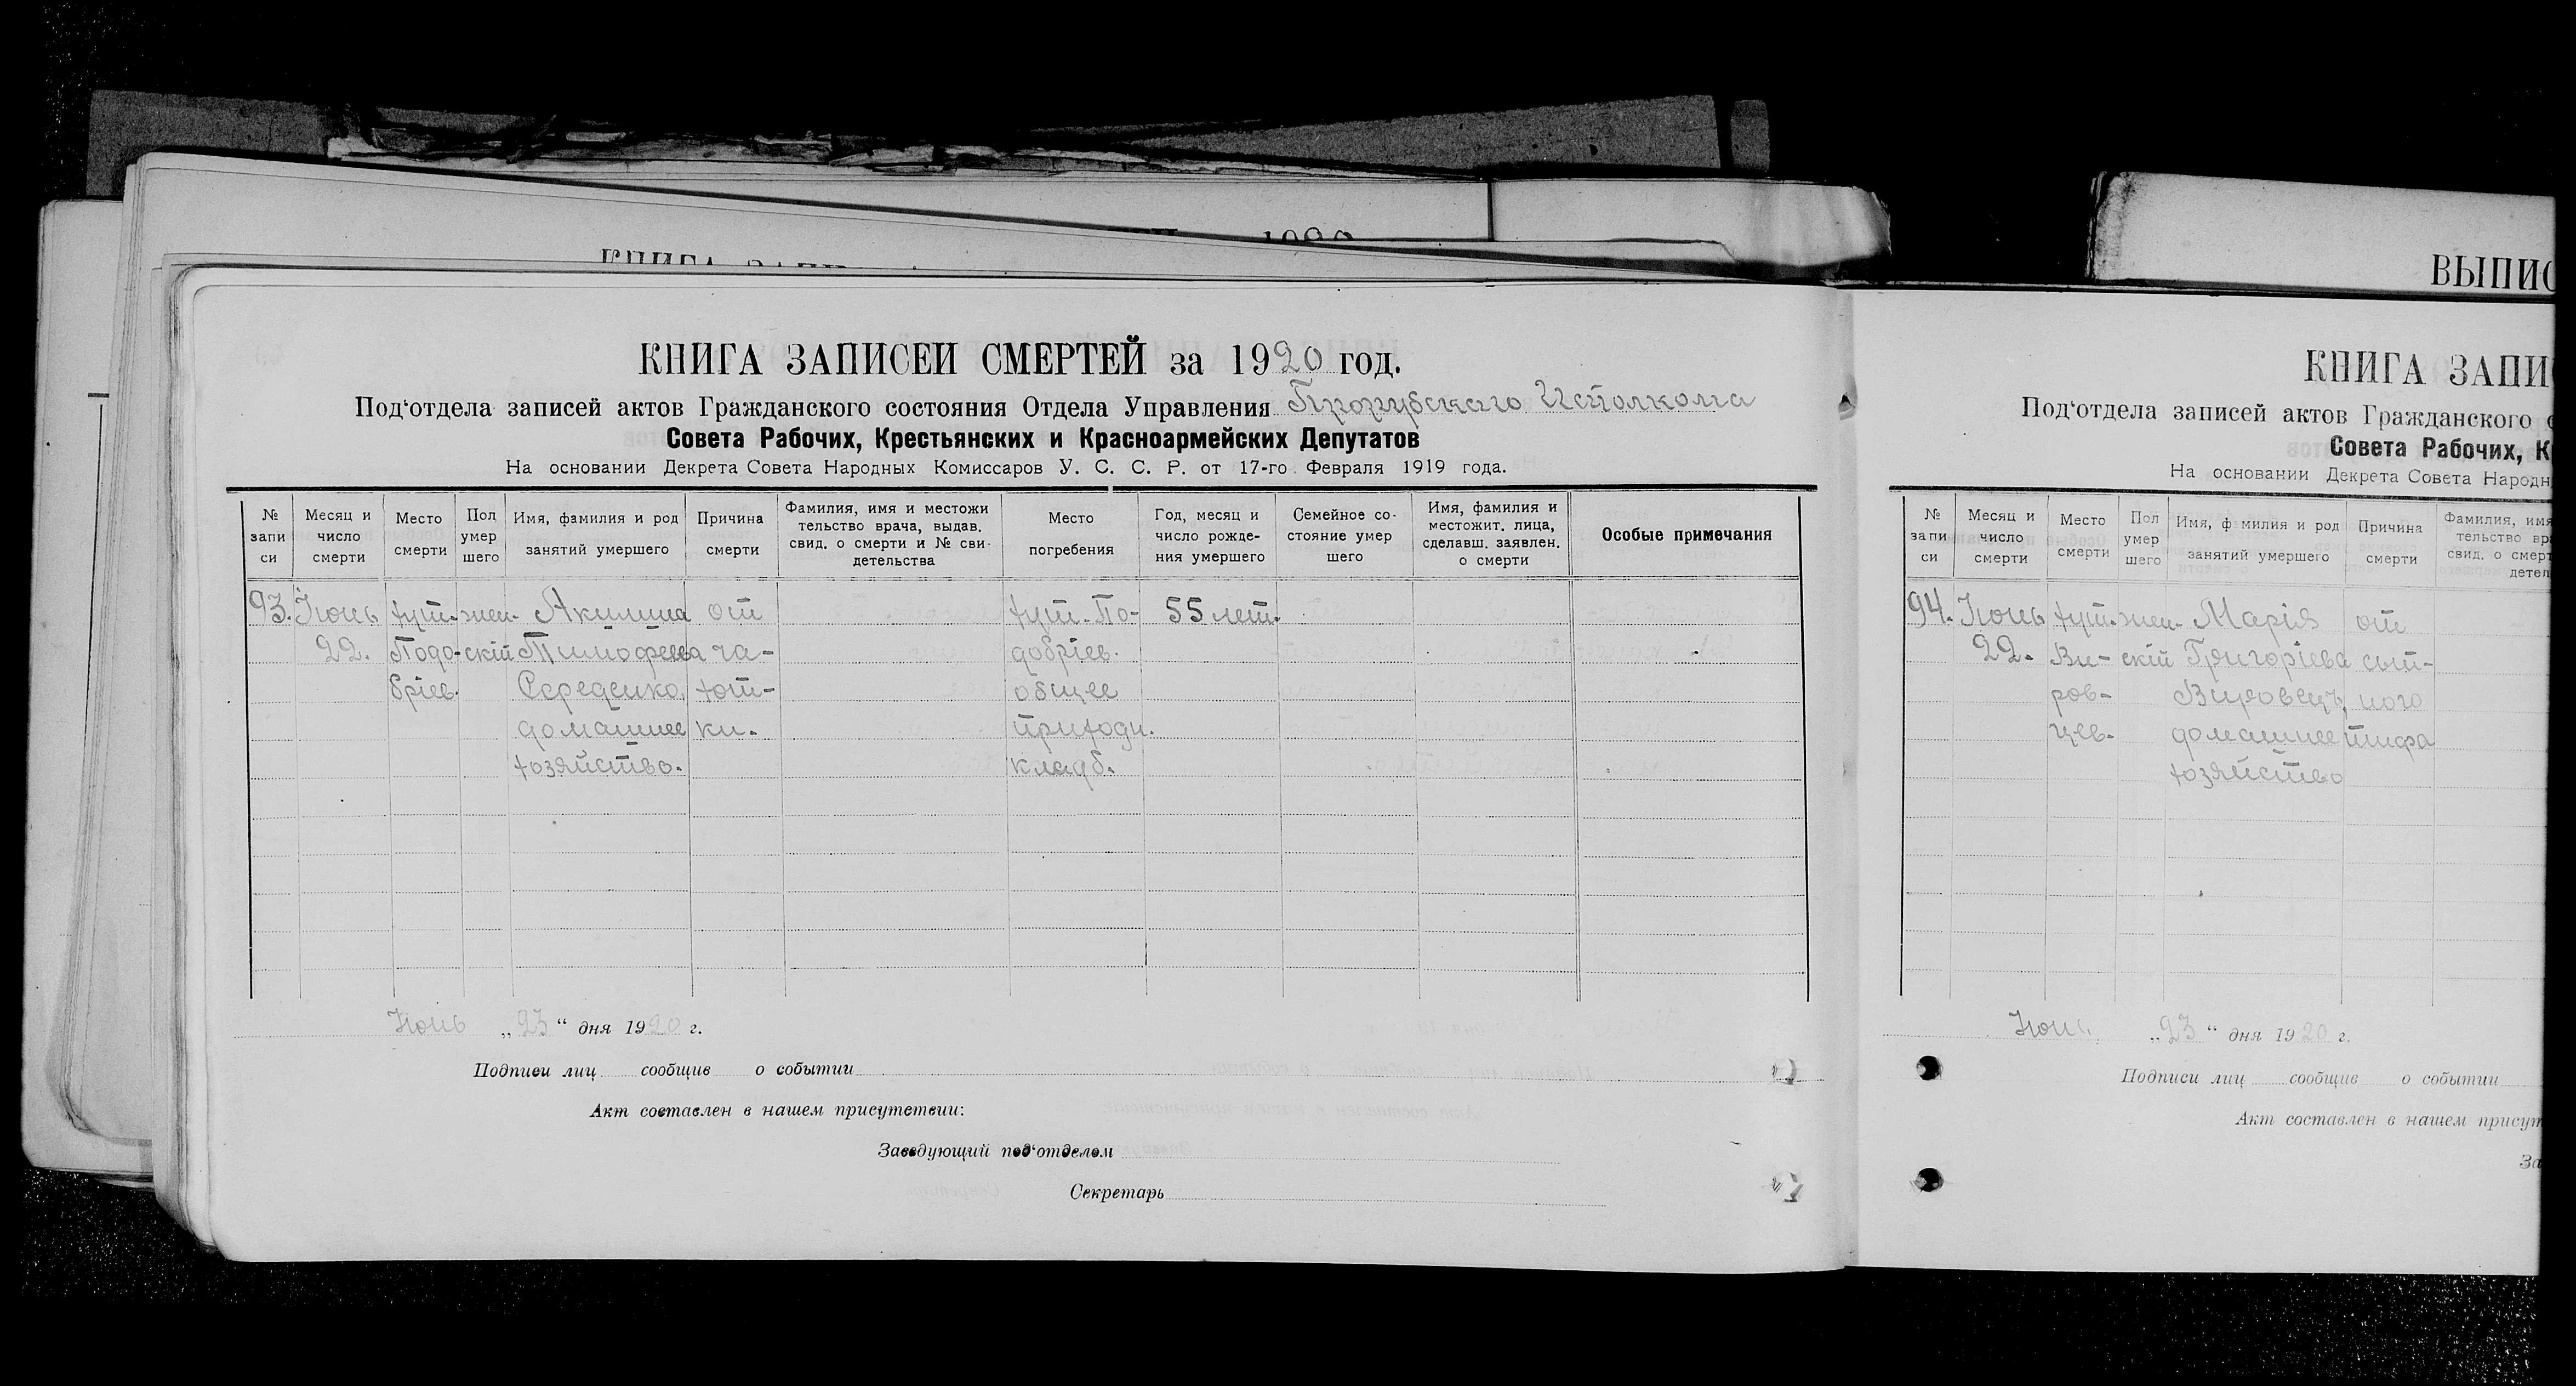 КНИГА ЗАП
1920
ВЫПИС
КНИГА ЗАПИСЕЙ СМЕРТЕЙ за 1920 год.
Под‘отдела записей актов Гражданского состояния Отдела Управления Исполкома
Совета Рабочих, Крестьянских и Красноармейских Депутатов
На основании Декрета Совета Народных Комиссаров У. С. С. Р. от 17-го Февраля 1919 года.
№ запи си
Месяц и число смерти
Место смерти
Пол умер шего
Имя, фамилия и род занятий умершего
Причина смерти
Фамилия, имя и местожи тельство врача, выдав. свид. о смерти и № сви- детельства
Место погребения
Год, месяц и число рожде- ния умершего
Семейное со- стояние умер шего
Имя, фамилия и местожит. лица, сделавш. заявлен. о смерти
Особые примечания
93. Июнь хут. жен- Акилина от хут. По- 55 лет.
22. Подо- скій Тимофеева ча- добріев.
бріев. Середенко, хот- общее
домашнее ки. приходн.
хозяйство. кладб.
Июнь „23“ дня 1920 г.
Подписи лиц сообщив о событии
Акт составлен в нашем присутствии:
Заведующий под‘отделом
Секретарь
КНИГА ЗАПИ
Под‘отдела записей актов Гражданского с
Совета Рабочих, К
На основании Декрета Совета Народн
№ запи си
Месяц и число смерти
Место смерти
Пол умер шего
Имя, ф милия и род занятий умершего
Причина смерти
Фамилия, имя тельство вр свид. о смерт детел
94. Июнь хут. жен- Марія от
22. Ви- скій Григоріева сып-
ров- Вировець, ного
цев. домашнее тифа
хозяйство
Июнь „23“ дня 1920 г.
Подписи лиц сообщив о событии
Акт составлен в нашем присут
За